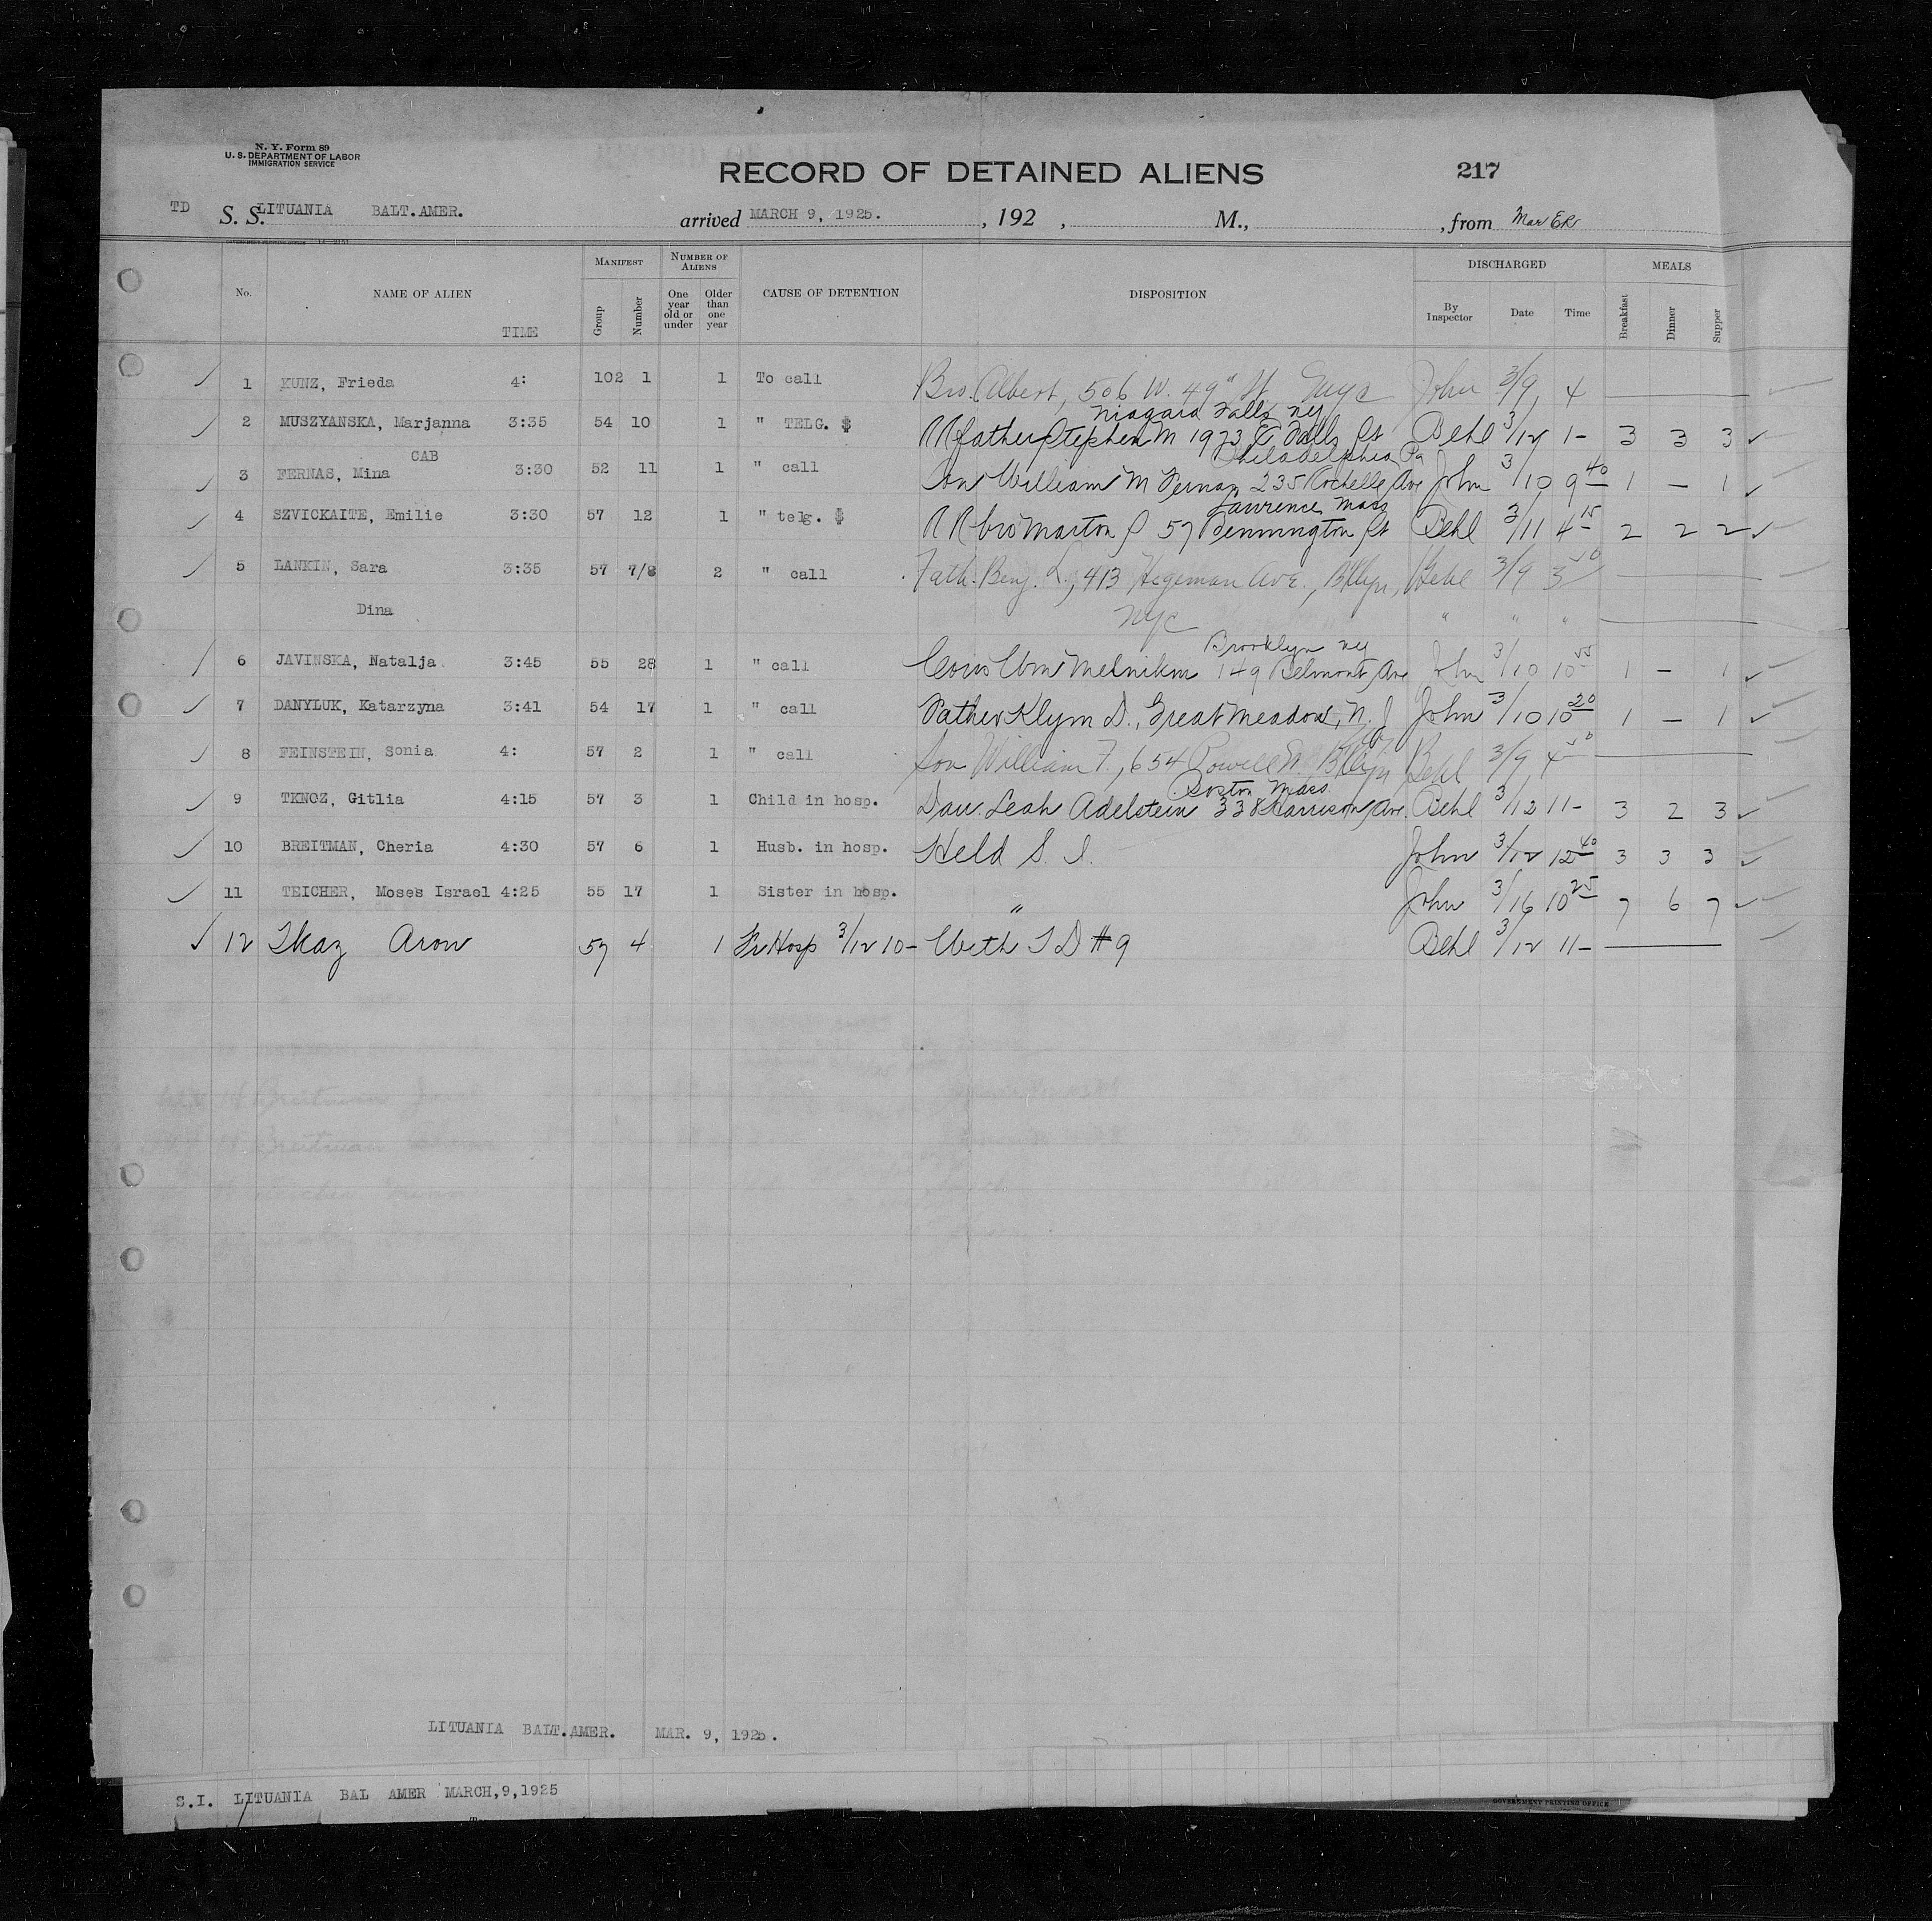 N. Y. Form 89
U. S. DEPARTMENT OF LABOR
IMMIGRATION SERVICE
RECORD OF DETAINED ALIENS 217
TD S. S. LITUANIA BALT.AMER. arrived MARCH 9, 1925. , 192 , M., , from
No. NAME OF ALIEN TIME MANIFEST Group Number NUMBER OF ALIENS One year old or under Older than one year CAUSE OF DETENTION DISPOSITION DISCHARGED By Inspector Date Time MEALS Breakfast Dinner Supper
1 KUNZ, Frieda 4: 102 1 1 To call Bro. Albert, 506 W. 49" St. John 3/9 4
Niagara Falls NY
2 MUSZYANSKA, Marjanna 3:35 54 10 1 " TELG. $ RR father Stephen M 1923 Falls St Behl 3/12 1- 3 3 3
CAB Philadelphia Pa
3 FERNAS, Mina 3:30 52 11 1 " call Son William M Fernas 235 Rochelle Ave John 3/10 9 40 1 — 1
Lawrence Mass
4 SZVICKAITE, Emilie 3:30 57 12 1 " telg. $ RR bro Marton S 57 Bennington St Behl 3/11 4 15 2 2 2
5 LANKIN, Sara 3:35 57 7/8 2 " call Fath. Benj. L., 413 Hegeman Ave., Bklyn, Behl 3/9 3 50
Dina NYC " " "
Brooklyn NY
6 JAVINSKA, Natalja 3:45 55 28 1 " call Cous Wm Melnikm 149 Belmont Ave John 3/10 10 55 1 — 1
7 DANYLUK, Katarzyna 3:41 54 17 1 " call Father Klym D., Great Meadow, N. J John 3/10 10 20 1 — 1
8 FEINSTEIN, Sonia 4: 57 2 1 " call Son William F., 654 Powell St. Bklyn Behl 3/9 4 50
Boston Mass
9 TKNOZ, Gitlia 4:15 57 3 1 Child in hosp. Dau. Leah Adelstein 338 Harrison Ave. Behl 3/12 11- 3 2 3
10 BREITMAN, Cheria 4:30 57 6 1 Husb. in hosp. Held S. I. John 3/12 12 40 3 3 3
11 TEICHER, Moses Israel 4:25 55 17 1 Sister in hosp. " John 3/16 10 25 7 6 7
12 Tkaz Aron 57 4 1 Fr Hosp 3/12 10- With T D #9 Behl 3/12 11-
LITUANIA BALT.AMER. MAR. 9, 1925.
S.I. LITUANIA BAL AMER MARCH,9,1925
GOVERNMENT PRINTING OFFICE